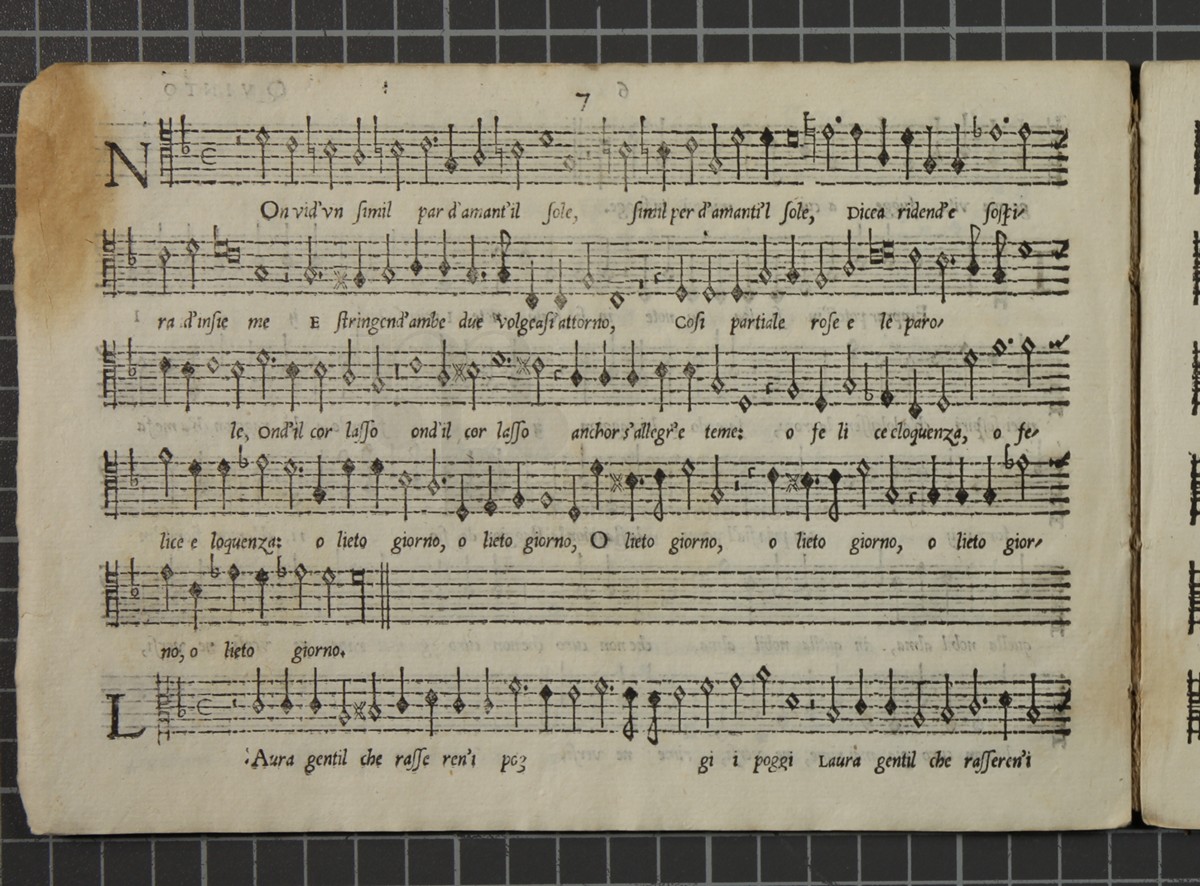 7
NOn vid'vn simil par d'amant'il sole, simil per d'amanti'l sole, Dicea ridend'e sospi-
ra d'insie me E stringend'ambe due volgeasi attorno, Cosi partiale rose e le paro-
le, Ond'il cor lasso ond'il cor lasso anchor s'allegr'e teme: o fe li ce eloquenza, o fe-
lice e loquenza: o lieto giorno, o lieto giorno, O lieto giorno, o lieto giorno, o lieto gior-
no, o lieto giorno.
L'Aura gentil che rasse ren'i pog gi i poggi Laura gentil che rasseren'i